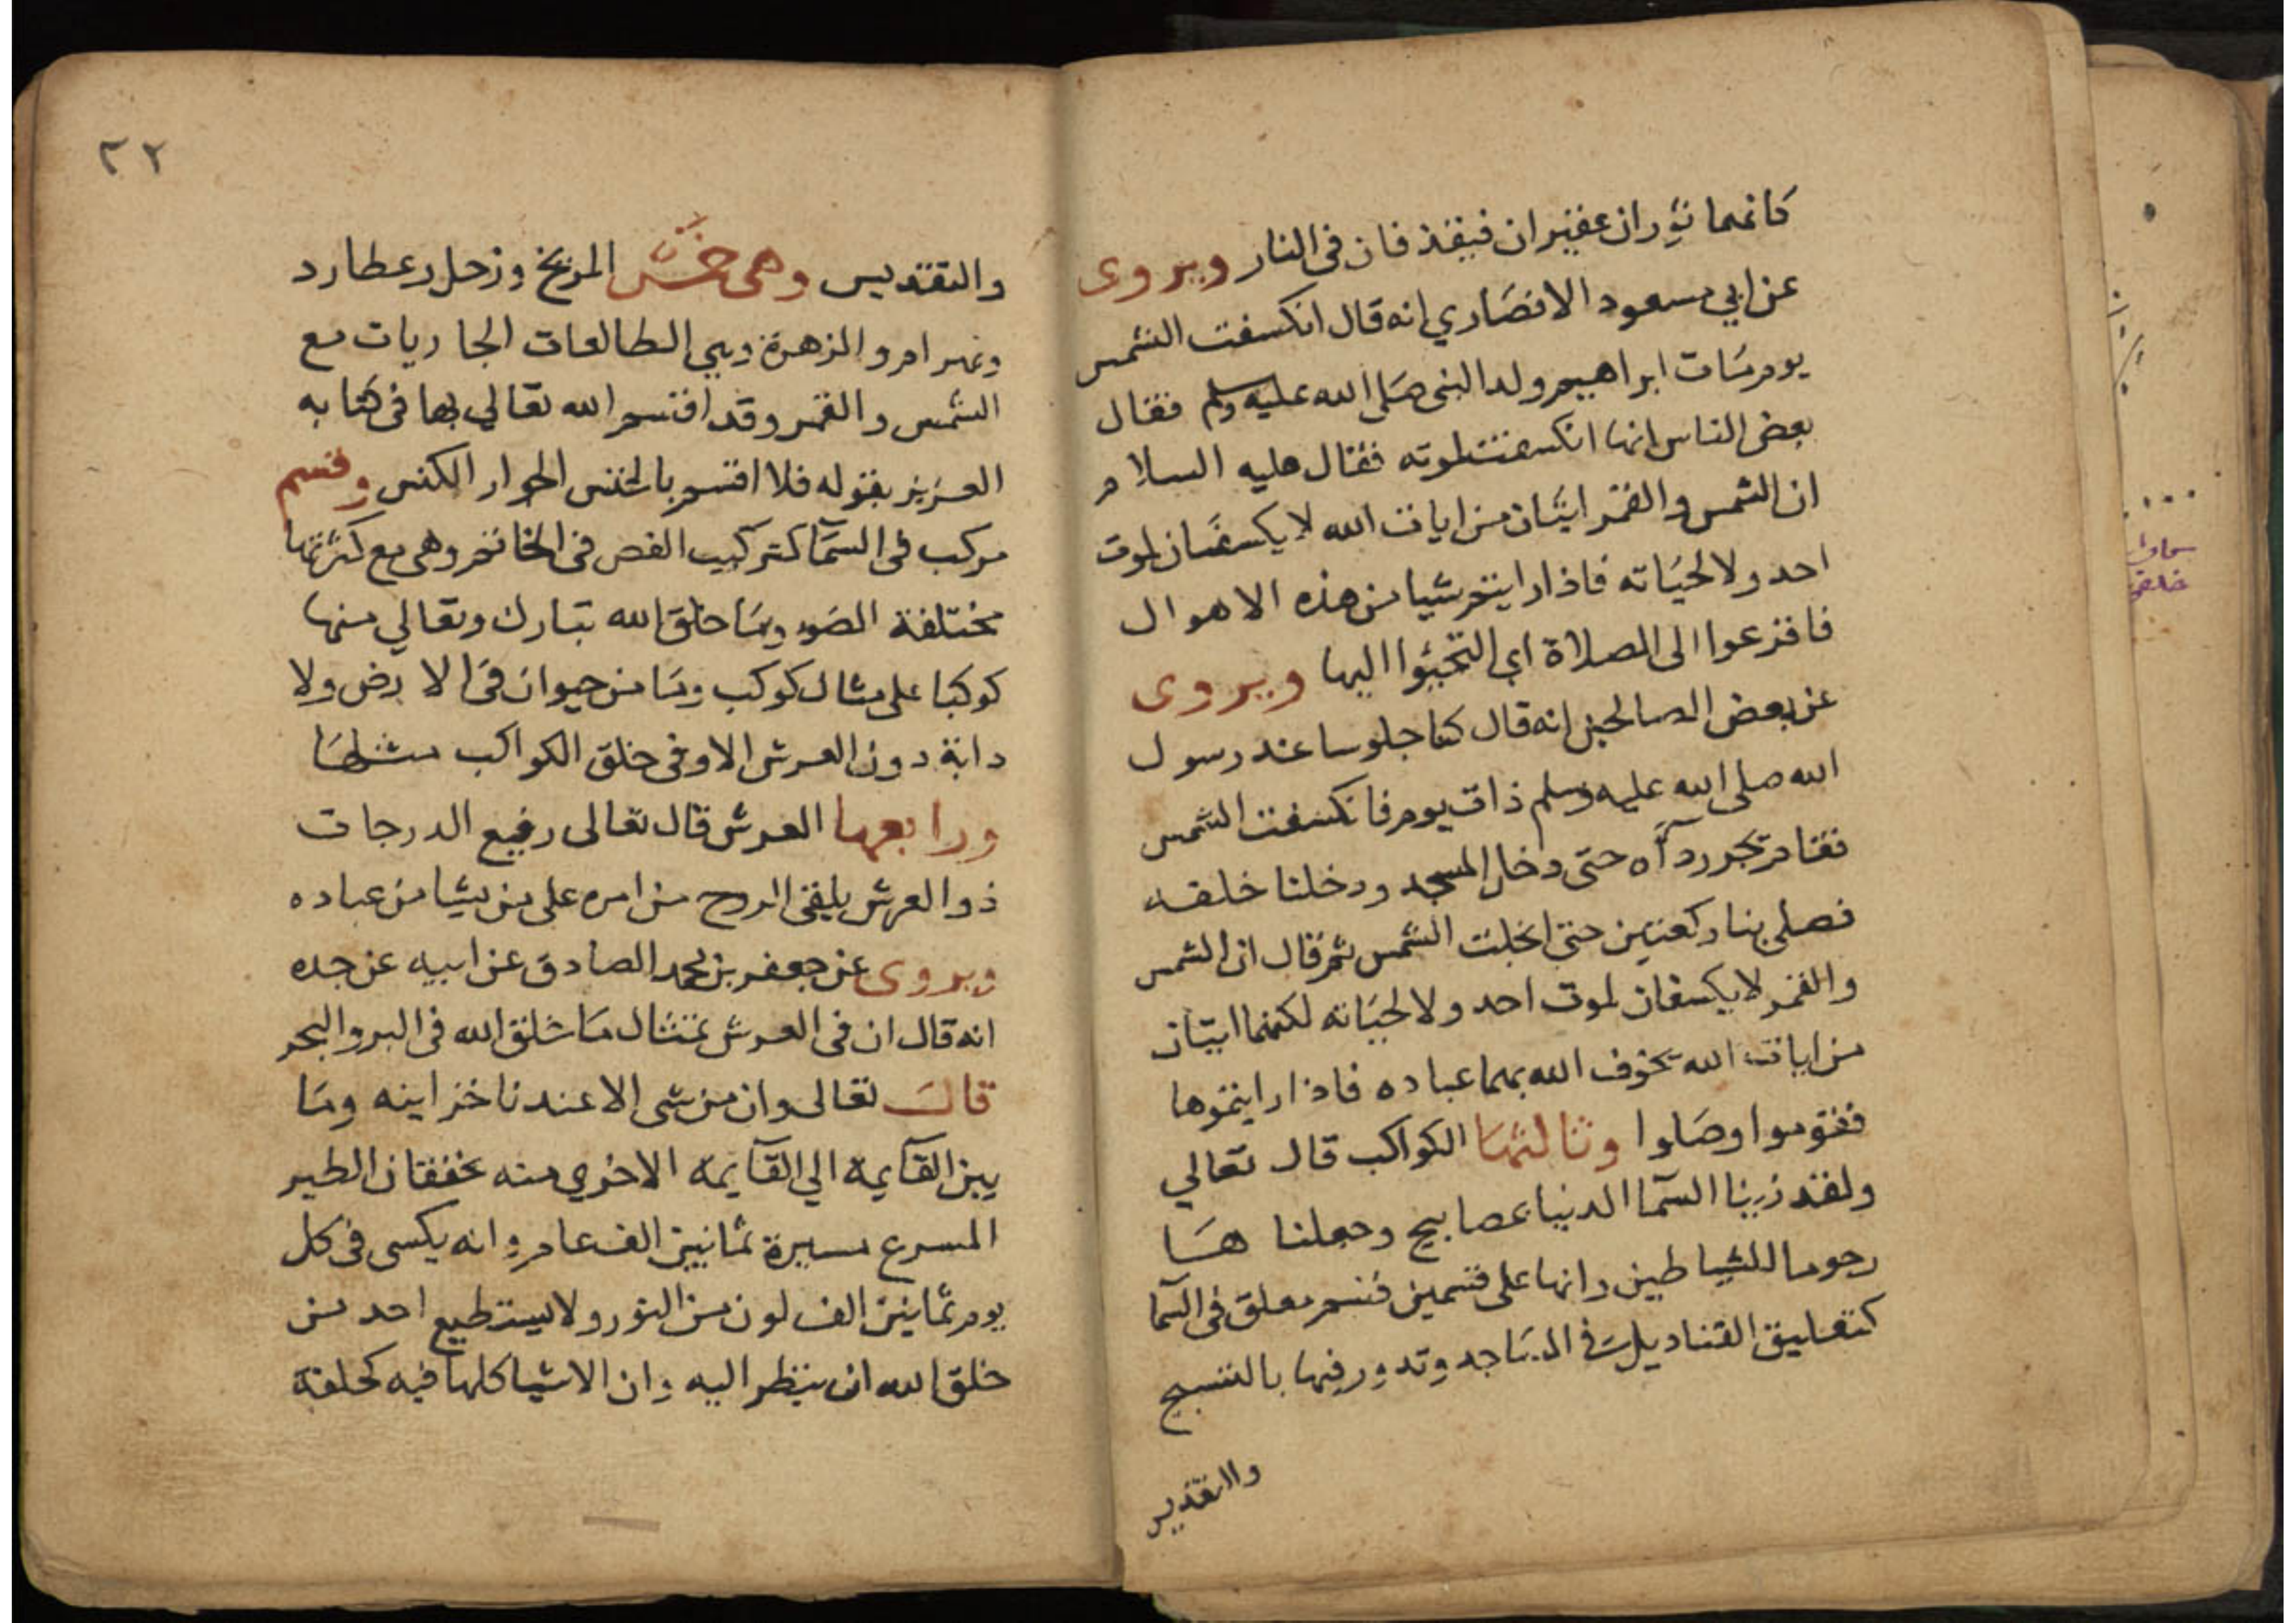 كانهما ثوران عقيران فيقذفان فى النار ويروى
عن ابي مسعود الانصَاري انه قال انكسفت الشمس
يوم مَات ابراهيم ولد النبى صَلى الله عليه وسلم فقال
بعض الناس انها انكسفت لموته فقال عليه السلام
ان الشمس والقمر ايتَان من ايات الله لا يكسفَان لموت
احد ولا لحيَاته فاذا رايتم شيا من هذه الاهوال
فافزعوا الى الصلاة اي التجيؤا اليها ويروى
عن بعض الصالحين انه قال كنا جلوسا عند رسول
الله صلى الله عليه وسلم ذات يوم فانكسفت الشمس
فقام يجر ردآه حتى دخل المسجد ودخلنا خلفه
فصلى بنا ركعتين حتى انجلت الشمس ثم قال ان الشمس
والقمر لا يكسفان لموت احد ولا لحيَاته لكنهما ايتان
من ايات الله يخوف الله بهما عباده فاذا رايتموها
فقوموا وصَلوا وثالثها الكواكب قال تعالي
ولقد زينا السمآ الدنيا بمصابيح وجعلنا هَا
رجوما للشياطين وانها على قسمين قسم معلق فى السمآ
كتعليق القناديل فى المسَاجد وتدور فيها بالتسبيح
والتقديس
٢٢
والتقديس وهى خمس المريخ وزحل وعطارد
وبهرام والزهرة وهي الطالعات الجاريات مع
الشمس والقمر وقد اقسم الله تعالي بها فى كتابه
العزيز بقوله فلا اقسم بالخنس الجوار الكنس وقسم
مركب فى السمآ كتركيب الفص فى الخاتم وهى مع كثرتها
مختلفة الصور ومَا خلق الله تبارك وتعالي منها
كوكبا على مثال كوكب ومَا من حيوان فى الارض ولا
دابة دون العرش الا وفى خلق الكواكب مثلهَا
ورابعها العرش قال تعالى رفيع الدرجات
ذو العرش يلقى الروح من امره على من يشا من عباده
ويروى عن جعفر بن محمد الصادق عن ابيه عن جده
انه قال ان فى العرش تمثال مَا خلق الله فى البر والبحر
قال تعالى وان من شى الا عندنا خزاينه ومَا
بين القآيمة الي القآيمة الاخري منه خفقان الطير
المسرع مسيرة ثمانين الف عام وانه يكسى فى كل
يوم ثمانين الف لون من النور ولا يستطيع احد من
خلق الله ان ينظر اليه وان الاشيا كلها فيه كحلقة